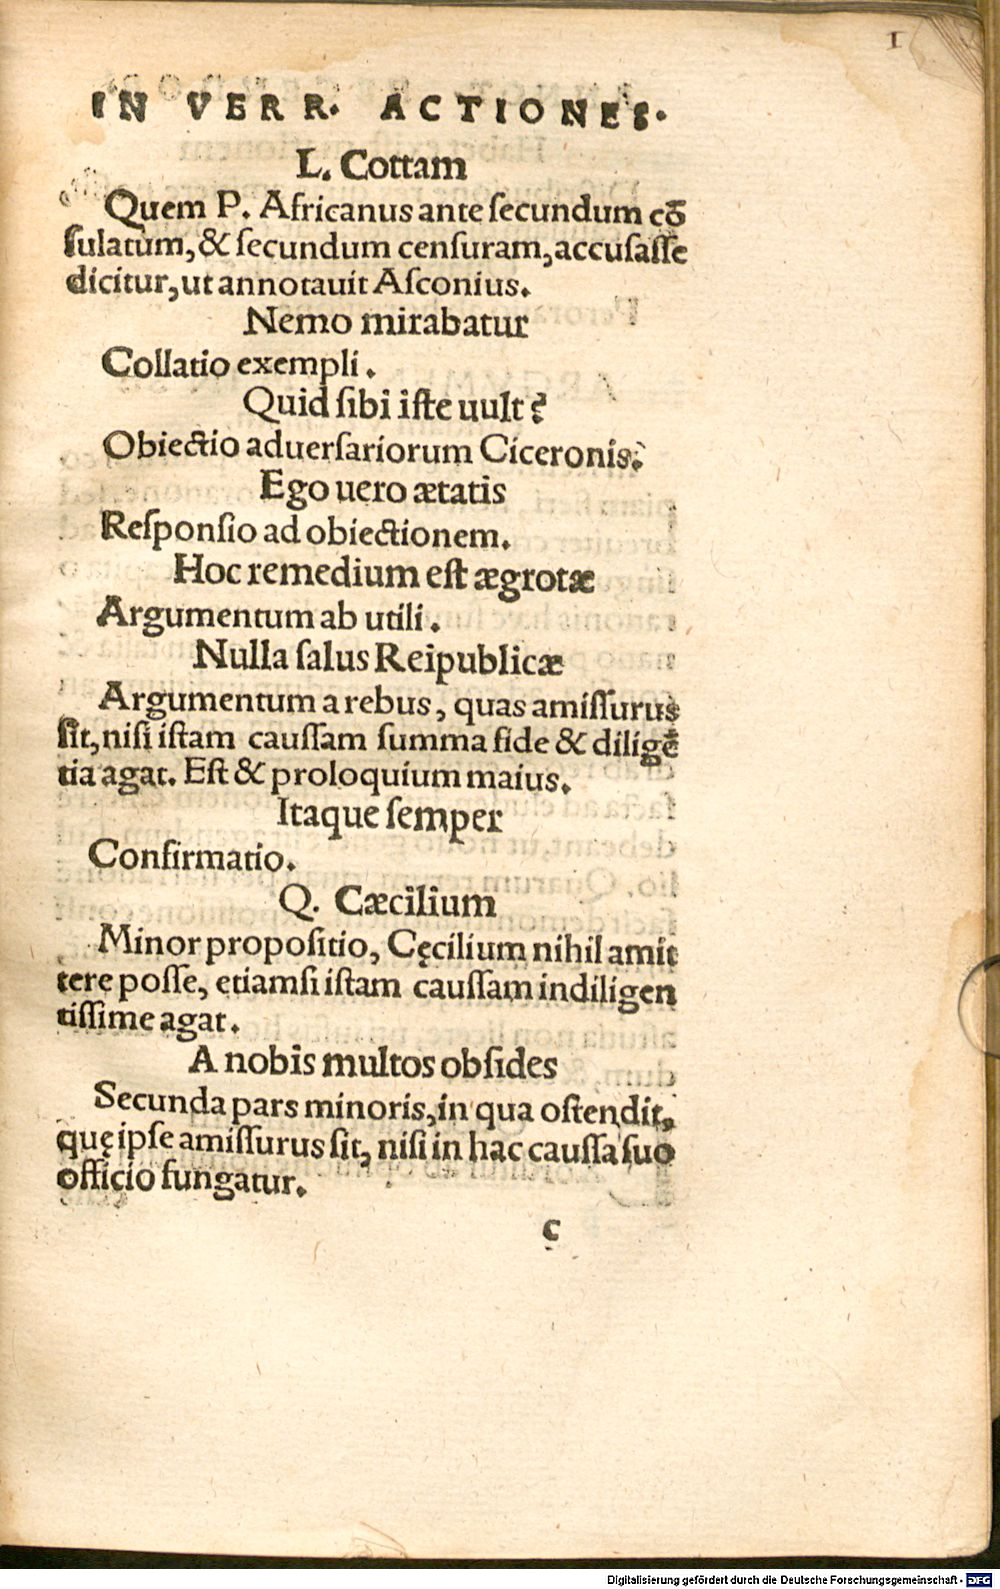 1
IN VERR. ACTIONES.
L. Cottam
Quem P. Africanus ante ſecundum cō
ſulatum, & ſecundum cenſuram, accuſaſſe
dicitur, ut annotauit Aſconius.
Nemo mirabatur
Collatio exempli.
Quid ſibi iſte uult?
Obiectio aduerſariorum Ciceronis.
Ego uero ætatis
Reſponſio ad obiectionem.
Hoc remedium eſt ægrotæ
Argumentum ab utili.
Nulla ſalus Reipublicæ
Argumentum a rebus, quas amiſſurus
ſit, niſi iſtam cauſſam ſumma fide & diligē
tia agat. Eſt & proloquium maius.
Itaque ſemper
Confirmatio.
Q. Cæcilium
Minor propoſitio, Cęcilium nihil amit
tere poſſe, etiamſi iſtam cauſſam indiligen
tiſſime agat.
A nobis multos obſides
Secunda pars minoris, in qua oſtendit,
quę ipſe amiſſurus ſit, niſi in hac cauſſa ſuo
officio fungatur.
C
Digitalisierung gefördert durch die Deutsche Forschungsgemeinschaft - DFG